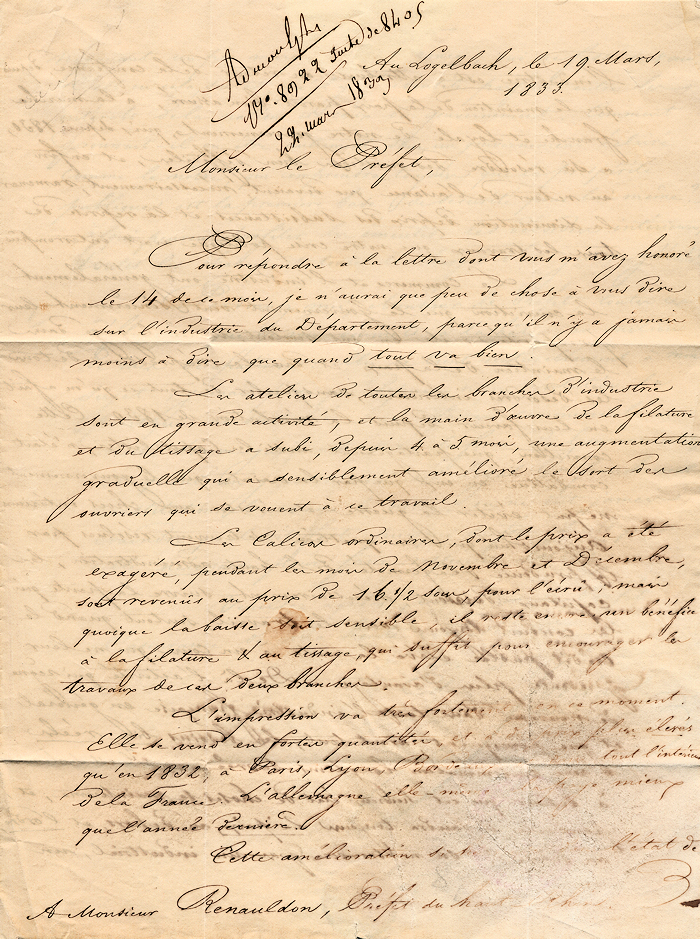 N°. 8922 Suite de 8405
22. mars 1833
Au Logelbach, le 19 Mars,
1833.
Monsieur le Préfet,
Pour répondre à la lettre dont vous m'avez honoré
le 14 de ce mois, je n'aurai que peu de chose à vous dire
sur l'industrie du Département, parce qu'il n'y a jamais
moins à dire que quand tout va bien.
Les ateliers de toutes les branches d'industrie
sont en grande activité, et la main d'œuvre de la filature
et du tissage a subi, depuis 4 à 5 mois, une augmentation
graduelle qui a sensiblement amélioré le sort des
ouvriers qui se vouent à ce travail.
Les Calicos ordinaires, dont le prix a été
exagéré, pendant les mois de Novembre et Décembre,
sont revenus au prix de 16 1/2 sous, pour l'écru, mais
quoique la baisse soit sensible, il reste encore un bénéfice
à la filature & au tissage, qui suffit pour encourager les
travaux de ces deux branches.
L'impression va très fortement en ce moment.
Elle se vend en fortes quantités, et plus élevés
qu'en 1832, à Paris, Lyon, Bordeaux tout l'intérieur
de la France. L'allemagne elle même mieux
que l'année dernière.
Cette amélioration l'état de
A Monsieur Renauldon, Préfet du haut Rhin.